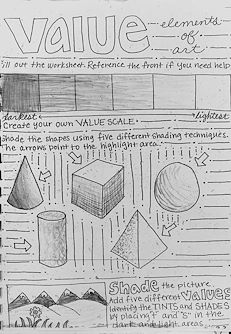 value elements
of
art
fill out the worksheet. Reference the front if you need help
darkest lightest
Create your own VALUE SCALE.
Shade the shapes using five different shading techniques.
The arrows point to the highlight area.
Shade the picture
Add five different VALUES
Identify the TINTS and SHADES
by placing "T" and "S" in the
dark and light areas.